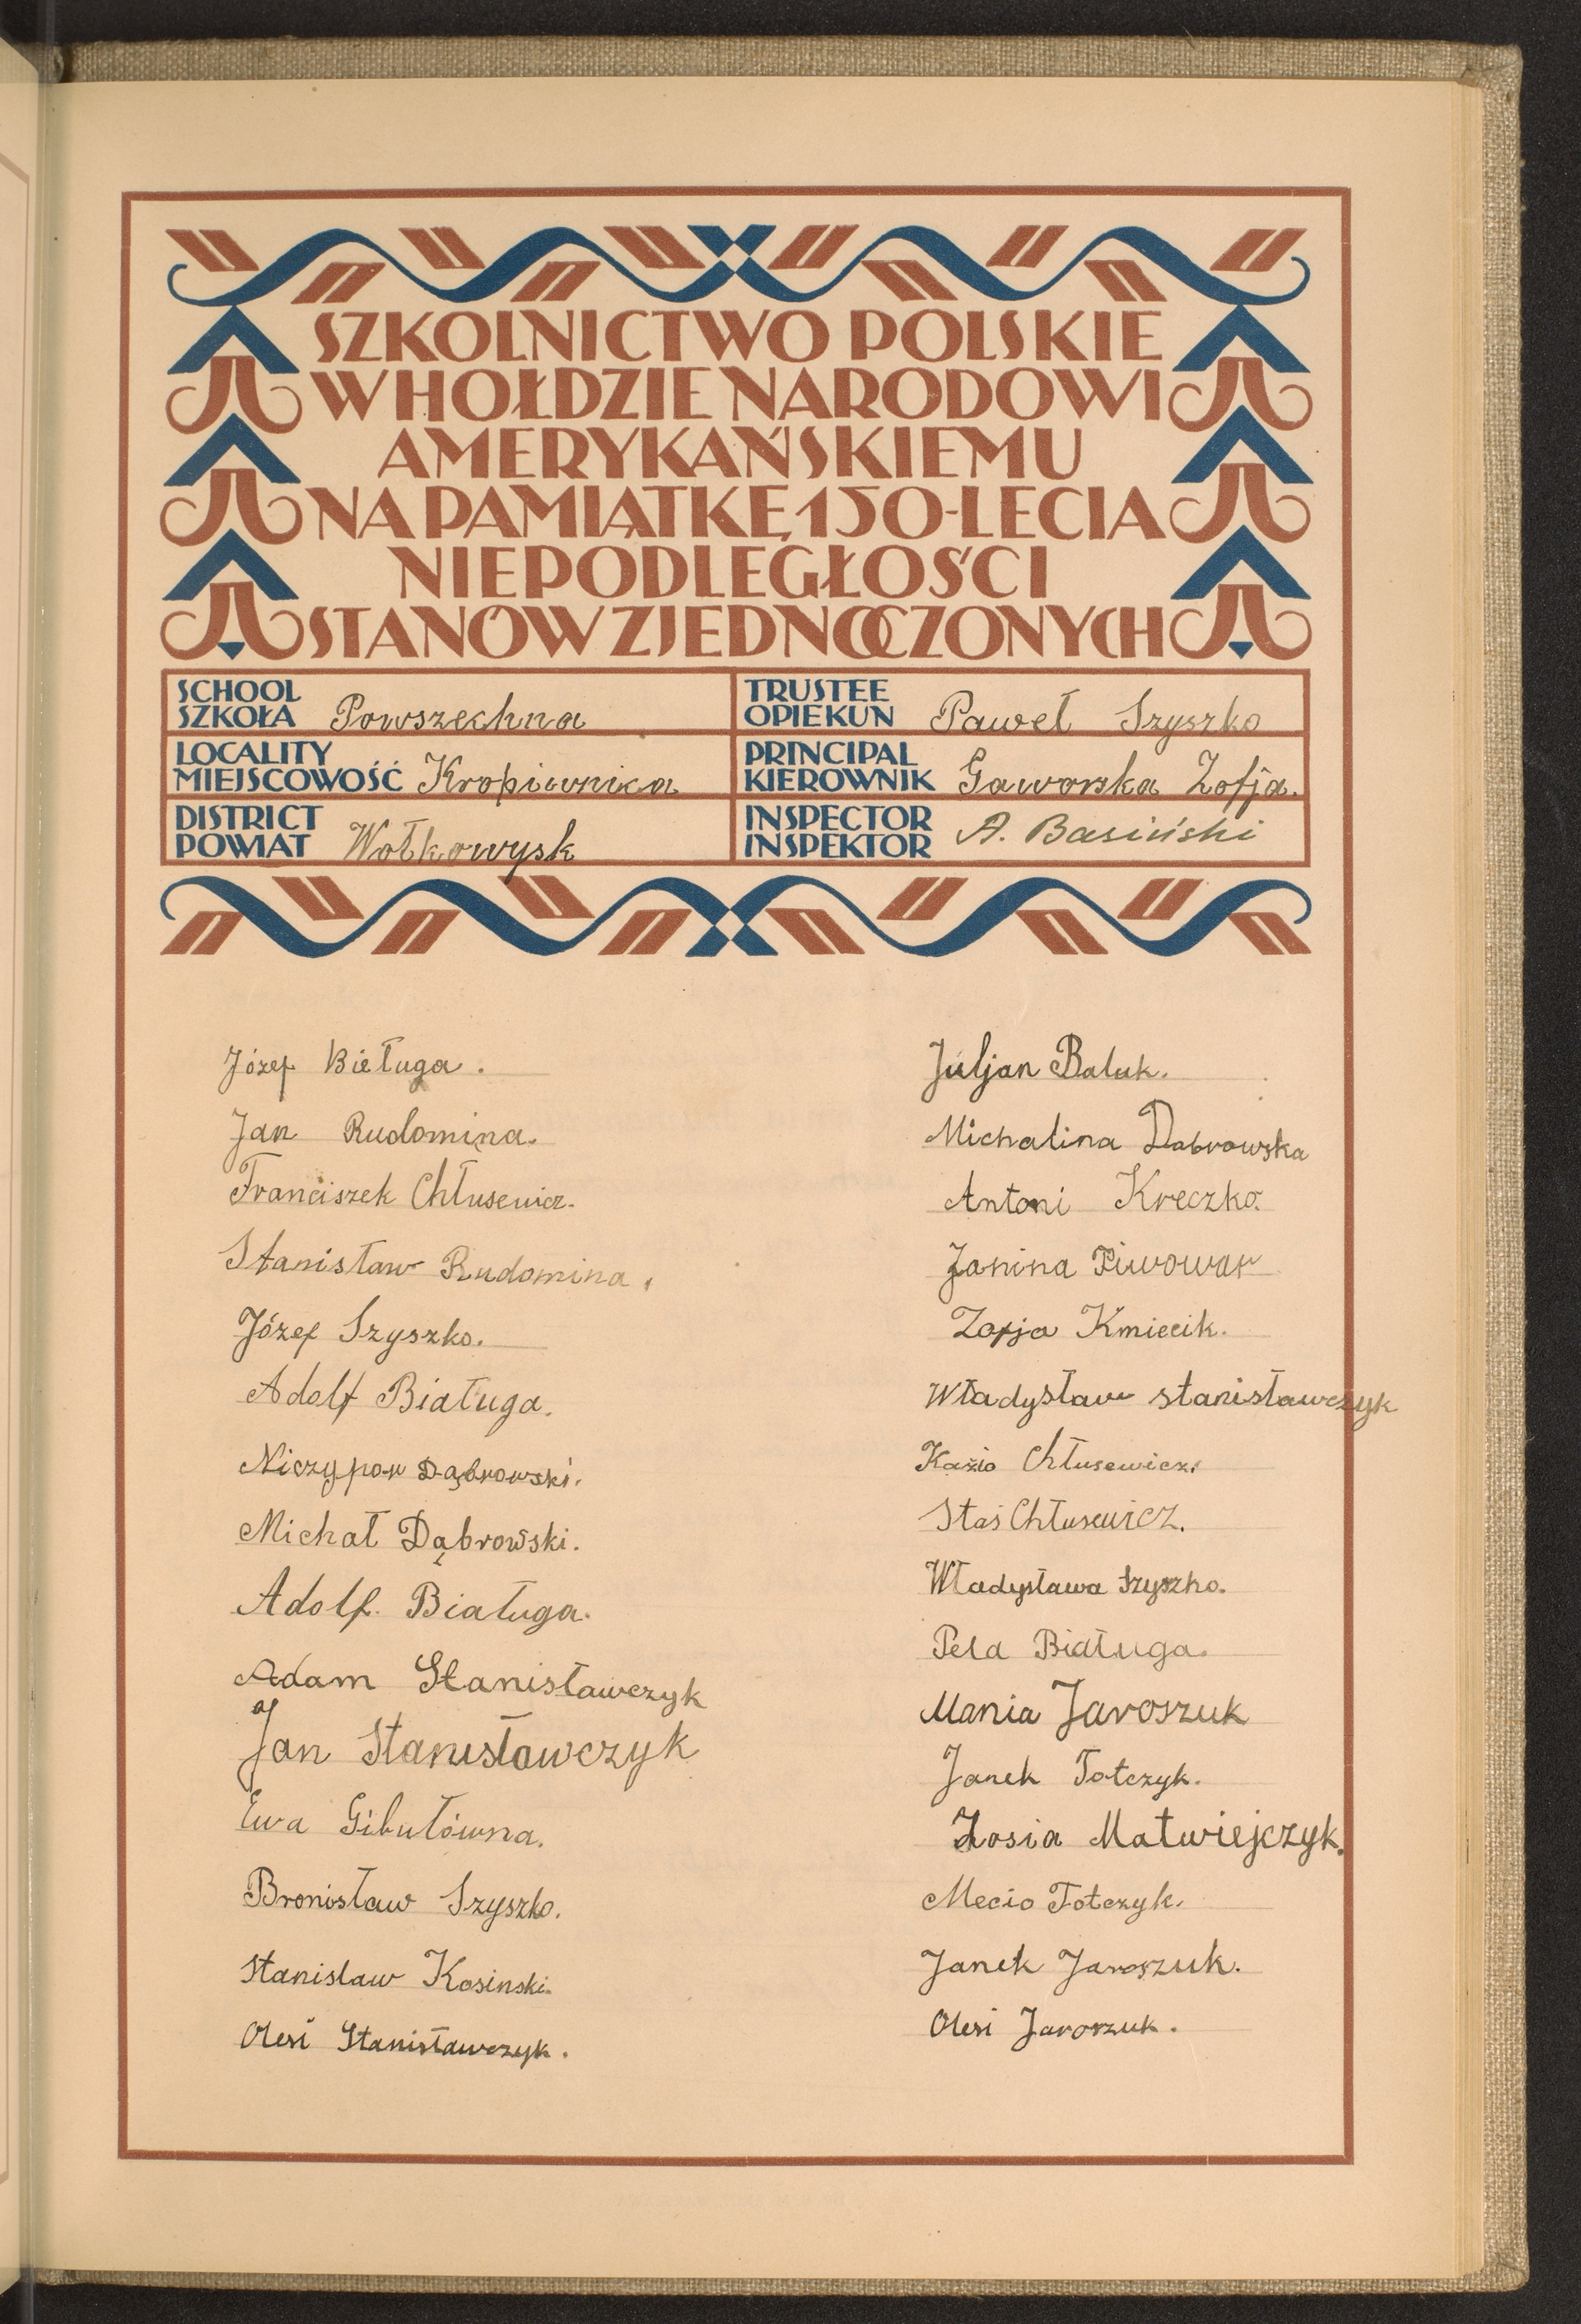 SZKOLNICTWO POLSKIE
W HOŁDZIE NARODOWI
AMERYKAŃSKIEMU
NA PAMIĄTKĘ 150-LECIA
NIEPODLEGŁOŚCI
STANÓW ZJEDNOCZONYCH
SCHOOL
SZKOŁA Powszechna
TRUSTEE
OPIEKUN Paweł Szyszko
LOCALITY
MIEJSCOWOŚĆ Kropiwnica
PRINCIPAL
KIEROWNIK Gaworska Zofja.
DISTRICT
POWIAT Wołkowysk
INSPECTOR
INSPEKTOR A. Basiński
Józef Bieługa.
Jan Rudomina.
Franciszek Chłusewicz.
Stanisław Rudomina.
Józef Szyszko.
Adolf Białuga.
Niczypor Dąbrowski.
Michał Dąbrowski.
Adolf. Białuga.
Adam Stanisławczyk
Jan Stanisławczyk
Ewa Gibułówna.
Bronisław Szyszko.
Stanislaw Kosinski.
Olesi Stanisławczyk.
Juljan Baluk.
Michalina Dabrowska
Antoni Kreczko.
Janina Piwowar
Zofja Kmiecik.
Władysław stanisławczyk
Kazio Chłusewicz.
Staś Chłusewicz.
Władysława Szyszko.
Pela Białuga.
Mania Jaroszuk
Janek Tołczyk.
Zosia Matwiejczyk.
Mecio Tołczyk.
Janek Jaroszuk.
Olesi Jaroszuk.